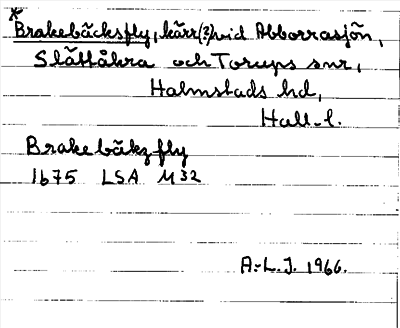 *Brakebäcksfly, kärr(?) vid Abborrasjön,
Slättåkra och Torups snr,
Halmstads hd,
Hall-l.
Brakebäkz fly
1675 LSA M32
A.-L.J. 1966.